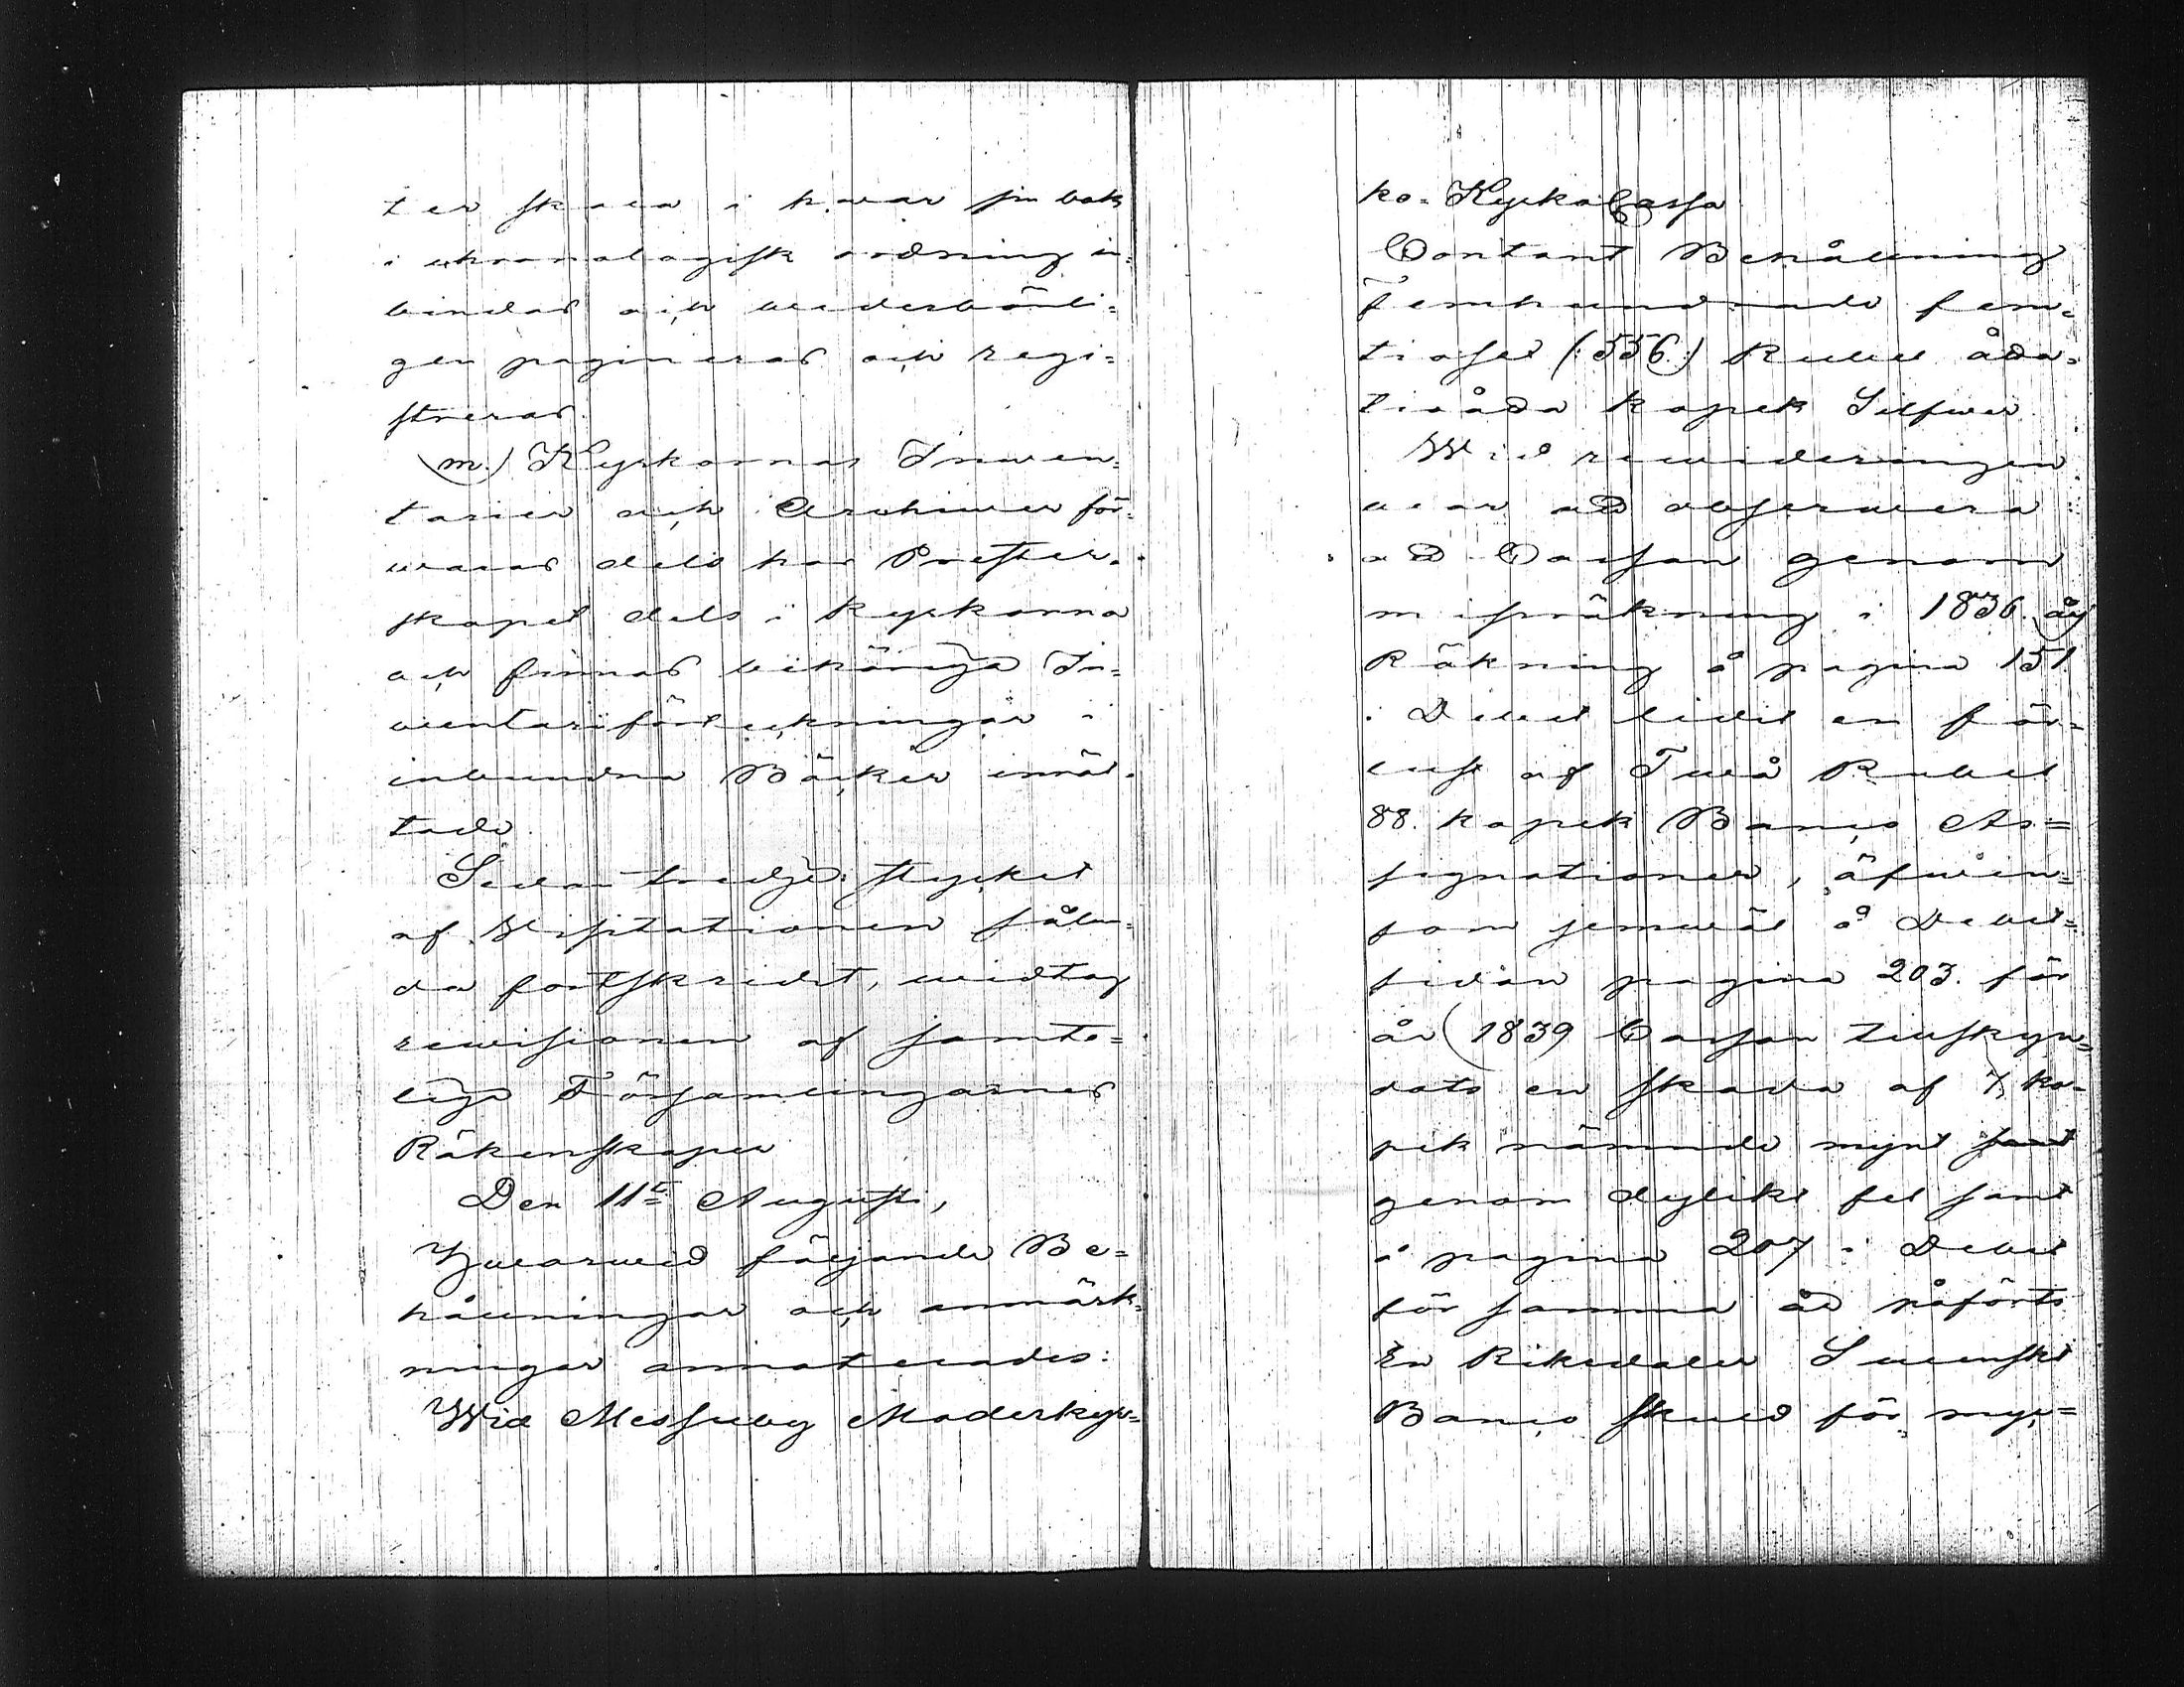 ter skola i hwar sin bok
i chronologisk ordning in=
bindas och wederböli=
gen pagineras och regi=
streras.
m.) Kyrkornas Inwen=
tarier och Archiver för=
waras dels hos Prester=
skapet dels i kyrkorna
och finnas behöriga In=
ventariiförteckningar i
inbundna Böcker inrät=
tade.
Sedan tredje stycket
af Visitationen sålun=
da fortskridit, widtog
revisionen af samte=
lige Församlingarnes
Räkenskaper
Den 11te Augusti,
Hwarwid följande Be=
hållningar och anmärk=
ningar annoterades:
Wid Messuby Moderkyr=
ko= Kyrko Cassa
Contant Behållning
Femhundrade fem=
tiosex (:556:) Rubel åtta=
tioåtta kopek Silfwer.
Wid revideringen
war att observera:
att Cassan genom
missräkning i 1836. års
Räkning å pagina 151
i Debet lidit en för=
lust af Twå Rubel
88. kopek Banco As=
signationer, äfwen=
som jemwäl å Debet=
sidan pagina 203. för
år 1839 Cassan tillskyn=
dats en skada af 7 ko=
pek nämnde mynt samt
genom dylikt fel samt
å pagina 207 i Debet
för samma år påförts
En Riksdaler Svenskt
Banco skuld för myc=